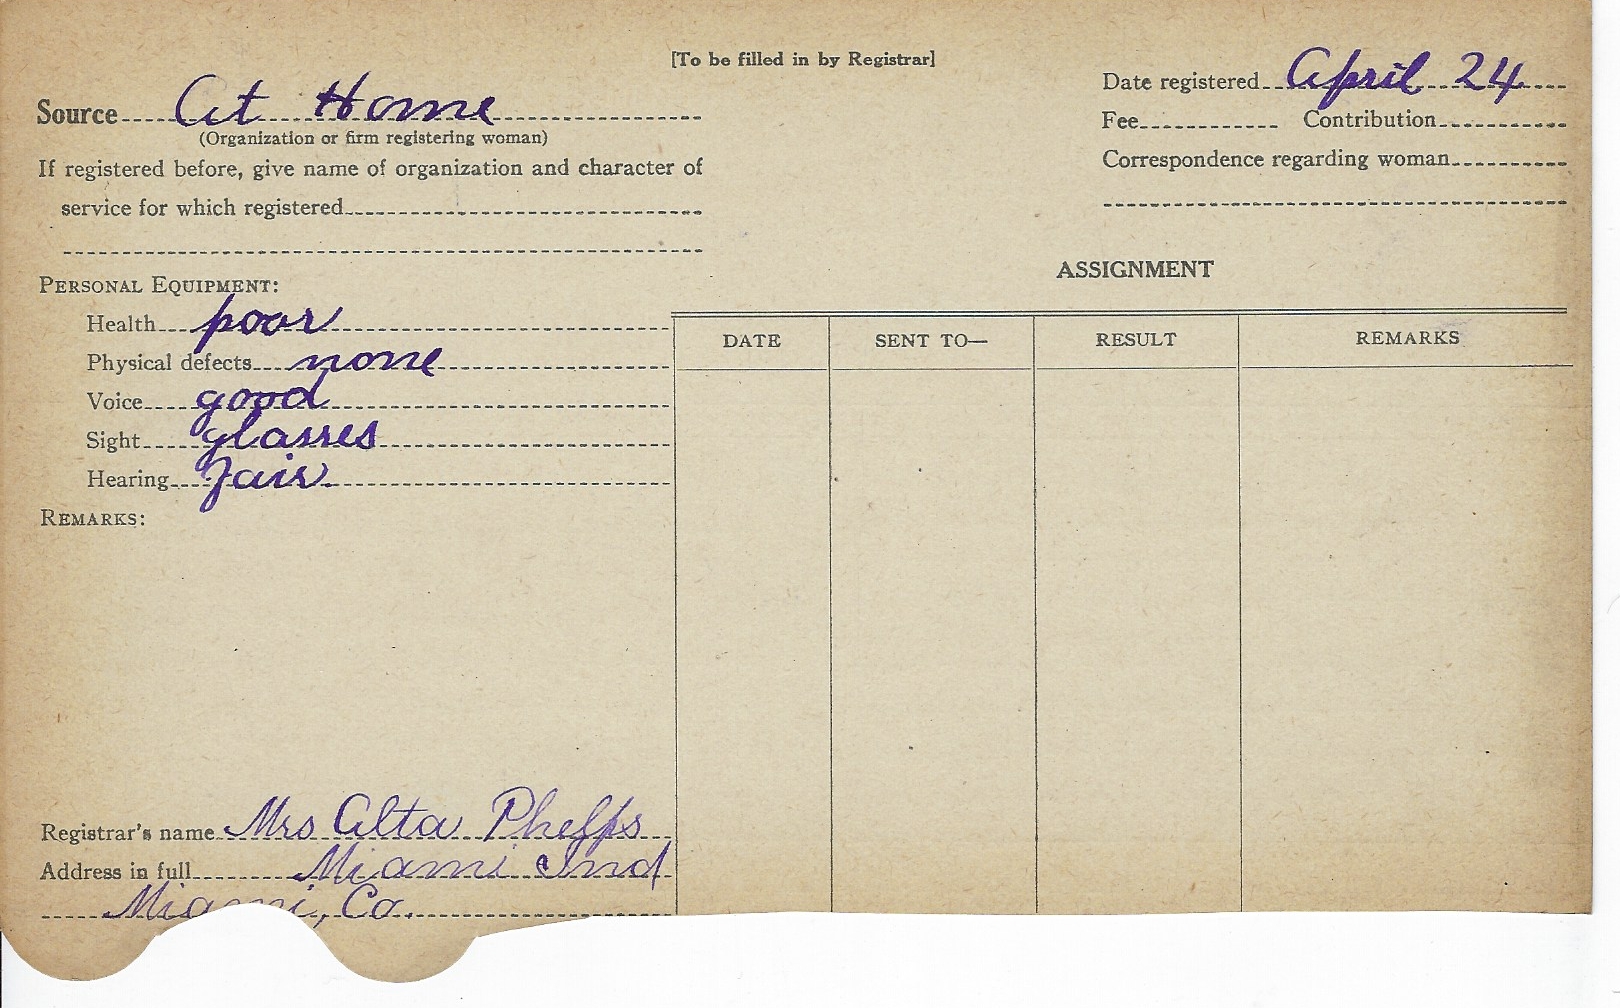 [To be filled in by Registrar]
Source At Home
(Organization or firm registering woman)
If registered before, give name of organization and character of
service for which registered
Date registered April 24
Fee Contribution
Correspondence regarding woman
PERSONAL EQUIPMENT:
Health poor
Physical defects none
Voice good
Sight glasses
Hearing fair.
REMARKS:
ASSIGNMENT
DATE SENT TO— RESULT REMARKS
Registrar's name Mrs Alta Phelps
Address in full Miami Ind
Miami, Co.